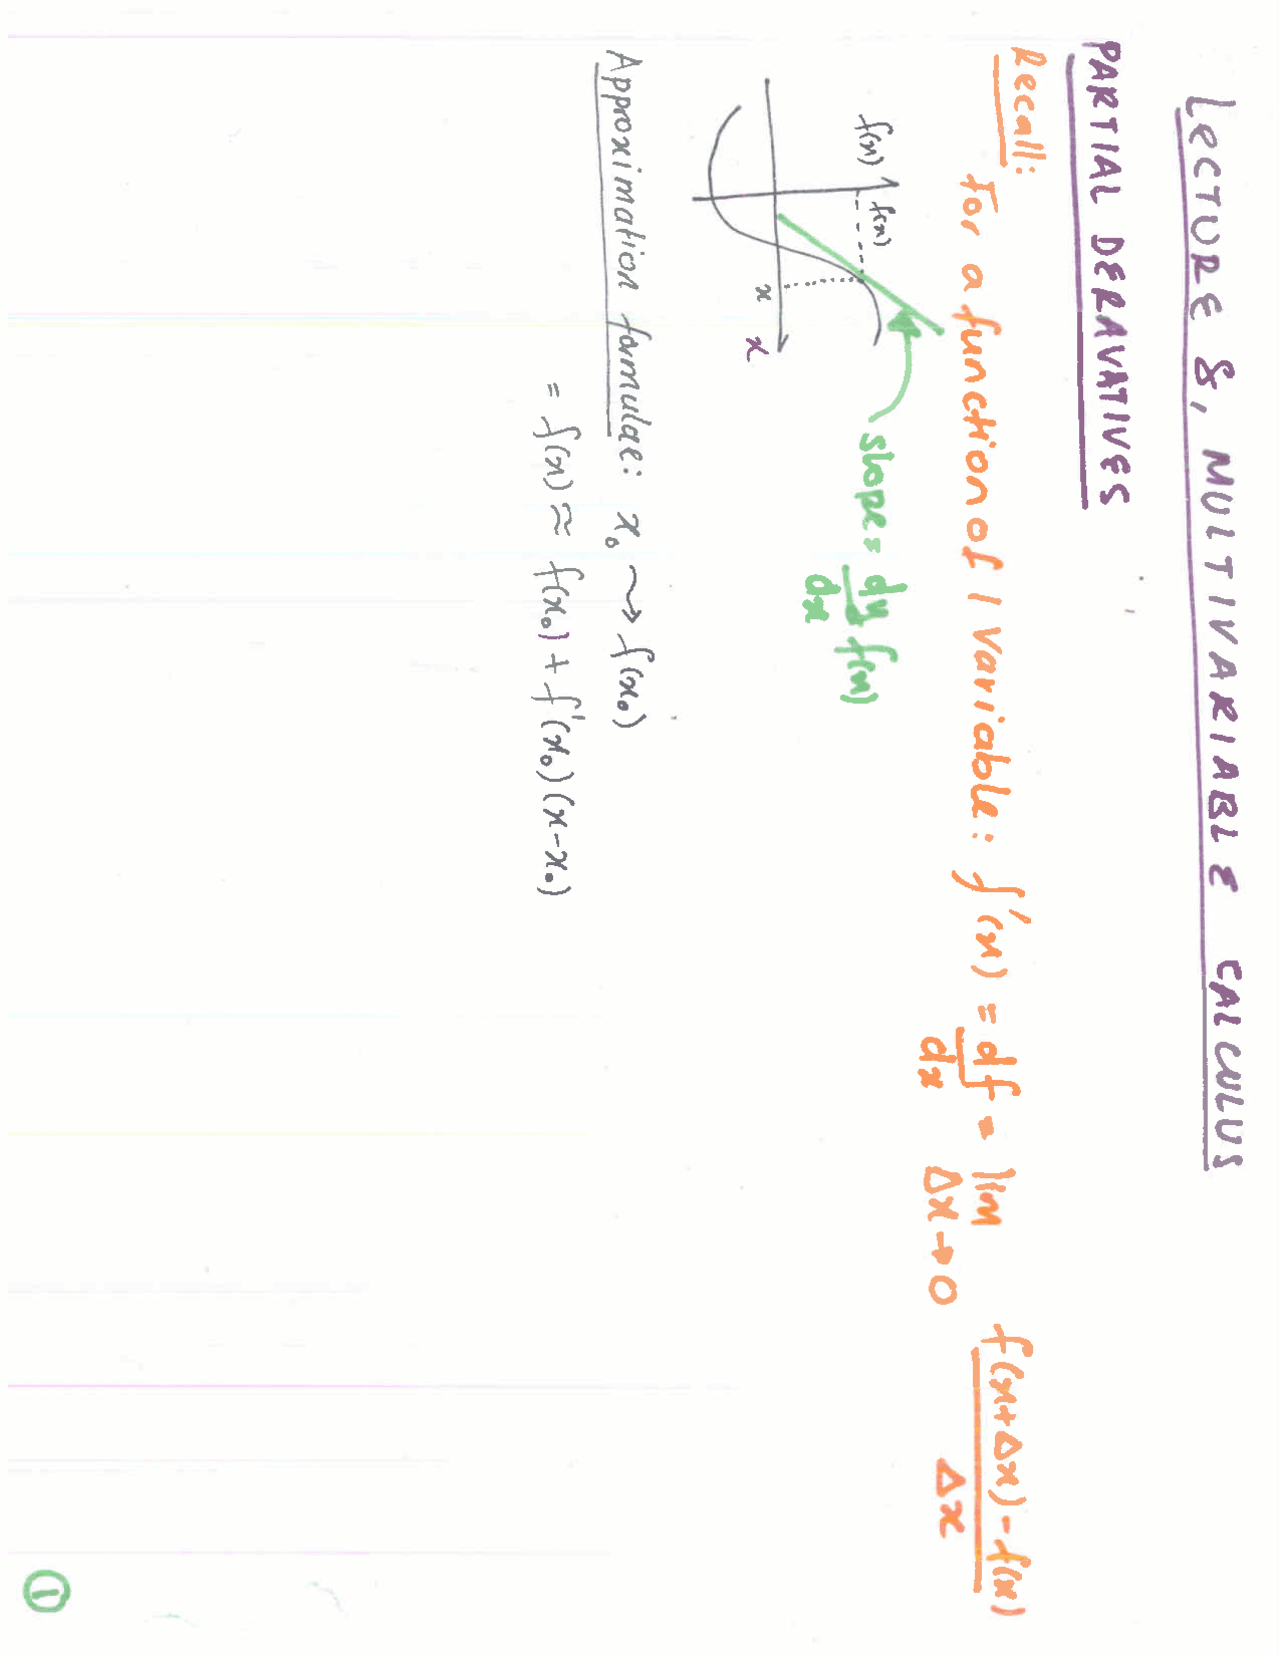 LECTURE 8, MULTIVARIABLE CALCULUS
PARTIAL DERAVATIVES
Recall:
for a function of 1 Variable: f'(x) = df/dx = lim Δx→0 f(x+Δx)-f(x)/Δx
f(x)
f(x)
x
x
slope = dy/dx f(x)
Approximation formulae: x₀ ⇝ f(x₀)
= f(x) ≈ f(x₀) + f'(x₀)(x-x₀)
1